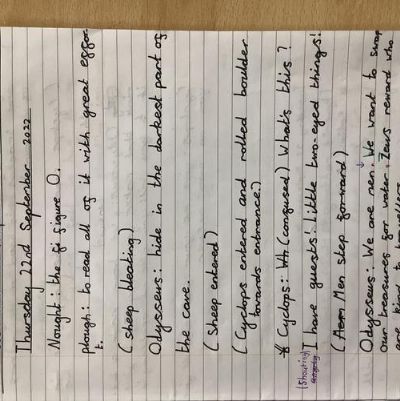 Thursday 22nd September 2022
Nought: the fi figure O.
plough: to read all of it with great effor
t.
(sheep bleating)
Odysseus: hide in the darkest part of
the cave.
(Sheep entered)
(Cyclops entered and rolled boulder
towards entrance.)
* Cyclops: Wh (confused) What's this?
(Shouting)
I have guests! little two-eyed things!
(Men step forward)
Odysseus: We are men. We want to swap
our treasures for water. Zeus reward who
are kind to travellers